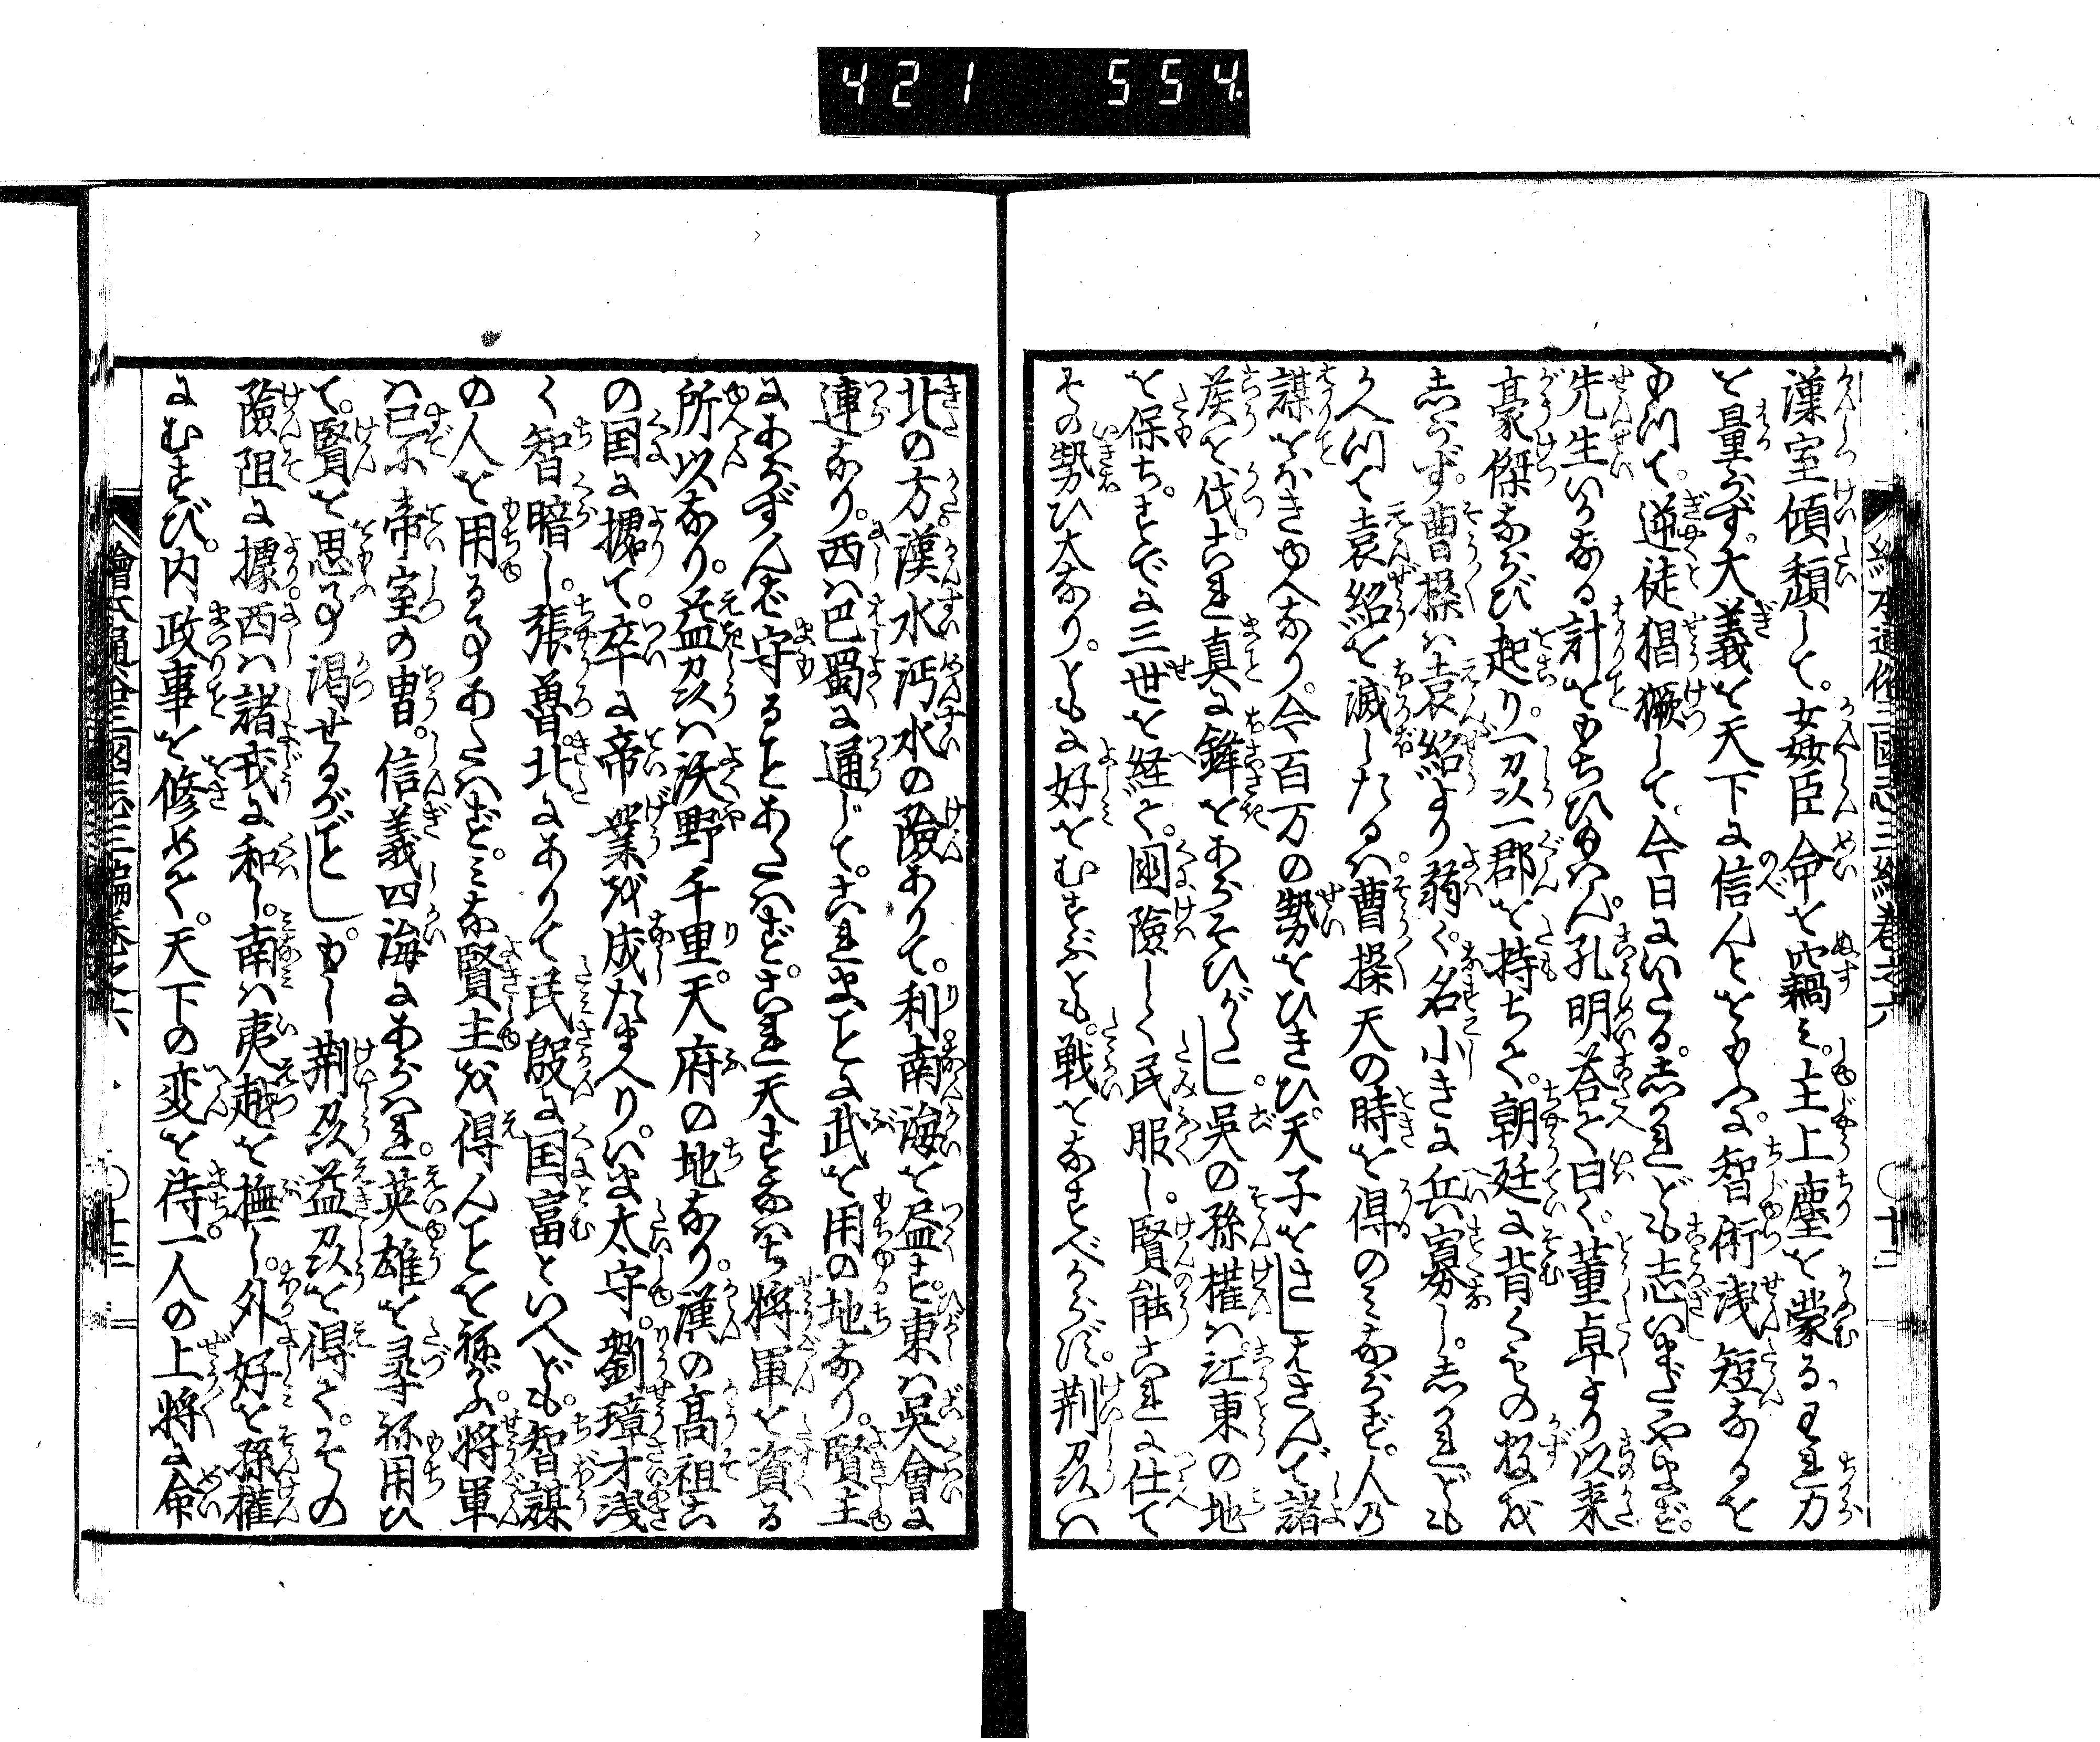 421 554
漢室傾頽して。女姦臣命を竊ミ。主上塵を蒙る。われ力
を量らず。大義を天下に信んとをもへど。智術浅短なるを
もつて。逆徒猖獗して。今日にいたる。しかれども志いまだやまず。
先生いかなる計をもちひ給はん。孔明荅て曰く。董卓より以来
豪傑ならび起り。一刕一郡を持ちて。朝廷に背くもの数を
しらず。曹操ハ袁紹より弱く。名小きに兵寡し。しかれども
かへつて袁紹を滅したるハ。曹操天の時を得のミならず。人乃
謀をふきゆへなり。今百万の勢をひきひ。天子をさしはさんで諸
侯を伐。これ真に鉾をあらそひがたし。吳の孫権ハ。江東の地
を保ち。すでに三世を経て。国險しく民服し。賢能これに仕て
その勢ひ大なり。ともに好をむすぶとも。戦をなすべからず。荆刕ハ
北の方漢水沔水の險ありて。利南海を盡す。東ハ吳會に
連なり。西ハ巴蜀に通じて。これまことに武を用の地なり。賢主
にあらずんば守ることあたハず。これ天すなハち將軍を資る
所以なり。益刕ハ沃野千里。天府の地なり。漢の髙祖こ
の国に據て。卒に帝業を成たまへり。いま太守。劉璋才浅
く智暗し。張魯北にありて民殷に国富といへども。智謀
の人を用る事あたハず。ミな賢主を得んことを祢がふ。將軍
ハ已に帝室の胄。信義四海にあらハれ。英雄を尋祢用ひ
て。賢を思る事渇せるがごとし。もし荆刕益刕を得て。その
險阻に據。西ハ諸戎に和し。南ハ夷越を撫し。外好を孫權
にむすび。内政事を修めて。天下の変を待。一人の上将に命
繪本通俗三國志三編卷之六 十二
繪本通俗三國志三編卷之六 十三